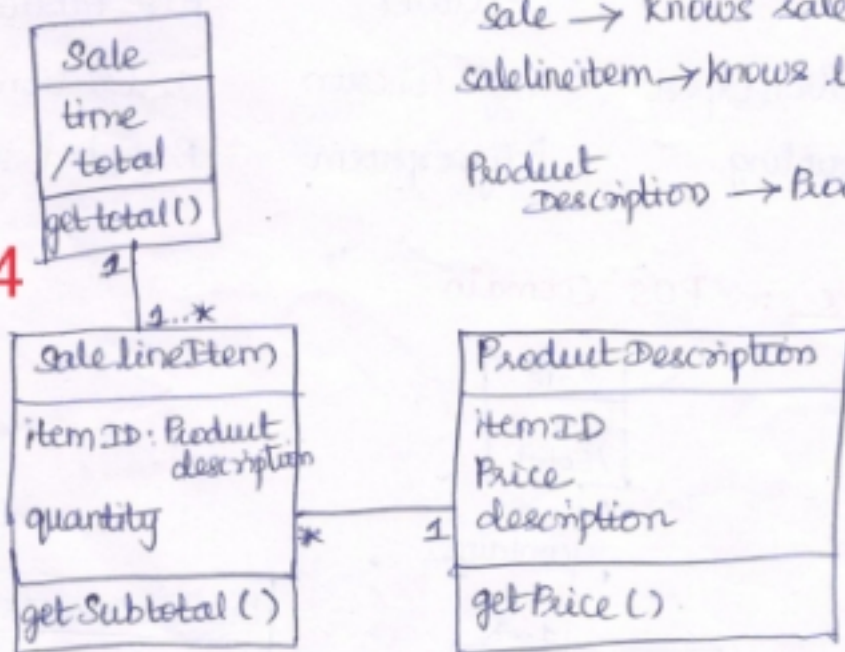 Sale
time
/total
gettotal()
1
1..*
4
sale → knows sale
salelineitem → knows
Product
Description →
SalelineItem
itemID: Product
description
quantity
getSubtotal()
*
1
ProductDescription
itemID
Price
description
getPrice()